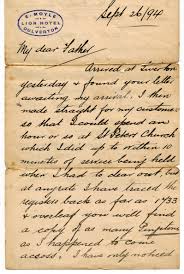 E. MOYLE
LION HOTEL
DULVERTON
Sept 26/94
My dear Father
Arrived at Tiverton
yesterday & found your letter
awaiting my arrival. I then
made straight for my customers
so that I could spend an
hour or so at St Peters Church
which I did up to within 10
minutes of service being held
when I had to clear out, but
at any rate I have traced the
registers back as far as 1733
& overleaf you will find
a copy of as many
as I happened to come
across, I have only noticed